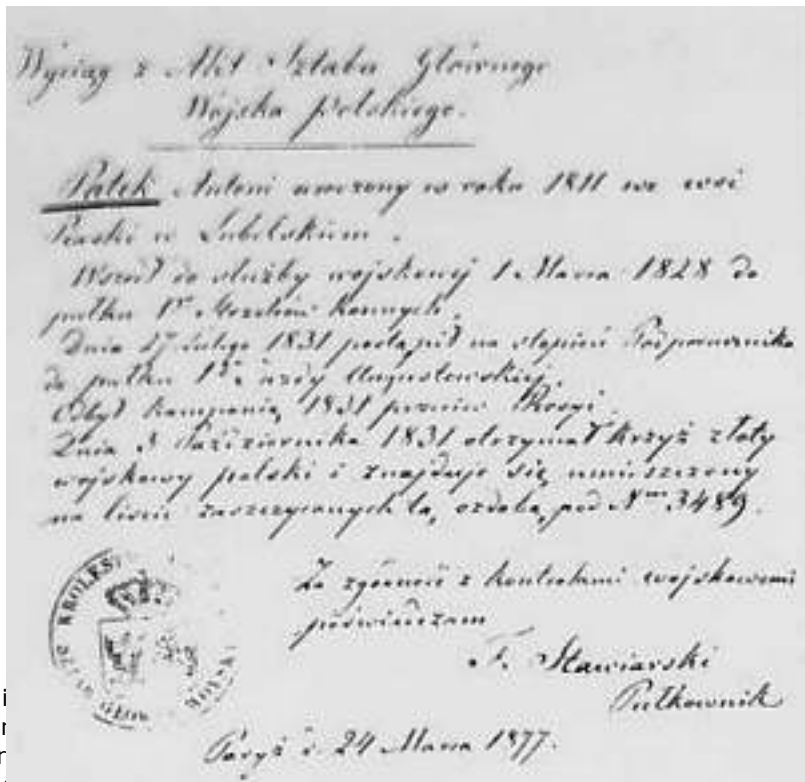 Wyciąg z Akt Sztabu Głównego
Wojska Polskiego.
Patek Antoni urodzony w roku 1811 we wsi
Piaski w Lubelskiem.
Wszedł do służby wojskowej 1 Marca 1828 do
pułku 1º Strzelców Konnych.
Dnia 27 Lutego 1831 postąpił na stopień Podporucznika
do pułku 1º Jazdy Augustowskiej.
Odbył kampanią 1831 przeciw Rosyi.
Dnia 3 Października 1831 otrzymał Krzyż złoty
wojskowy polski i znajduje się umieszczony
na liście zaszczyconych tą ozdobą pod Nrem 3489.
Za zgodność z kontrolami wojskowemi
poświadczam
F. Stawiarski
Pułkownik
Paryż d. 24 Marca 1877.
KRÓLES
SZTAB GŁÓW